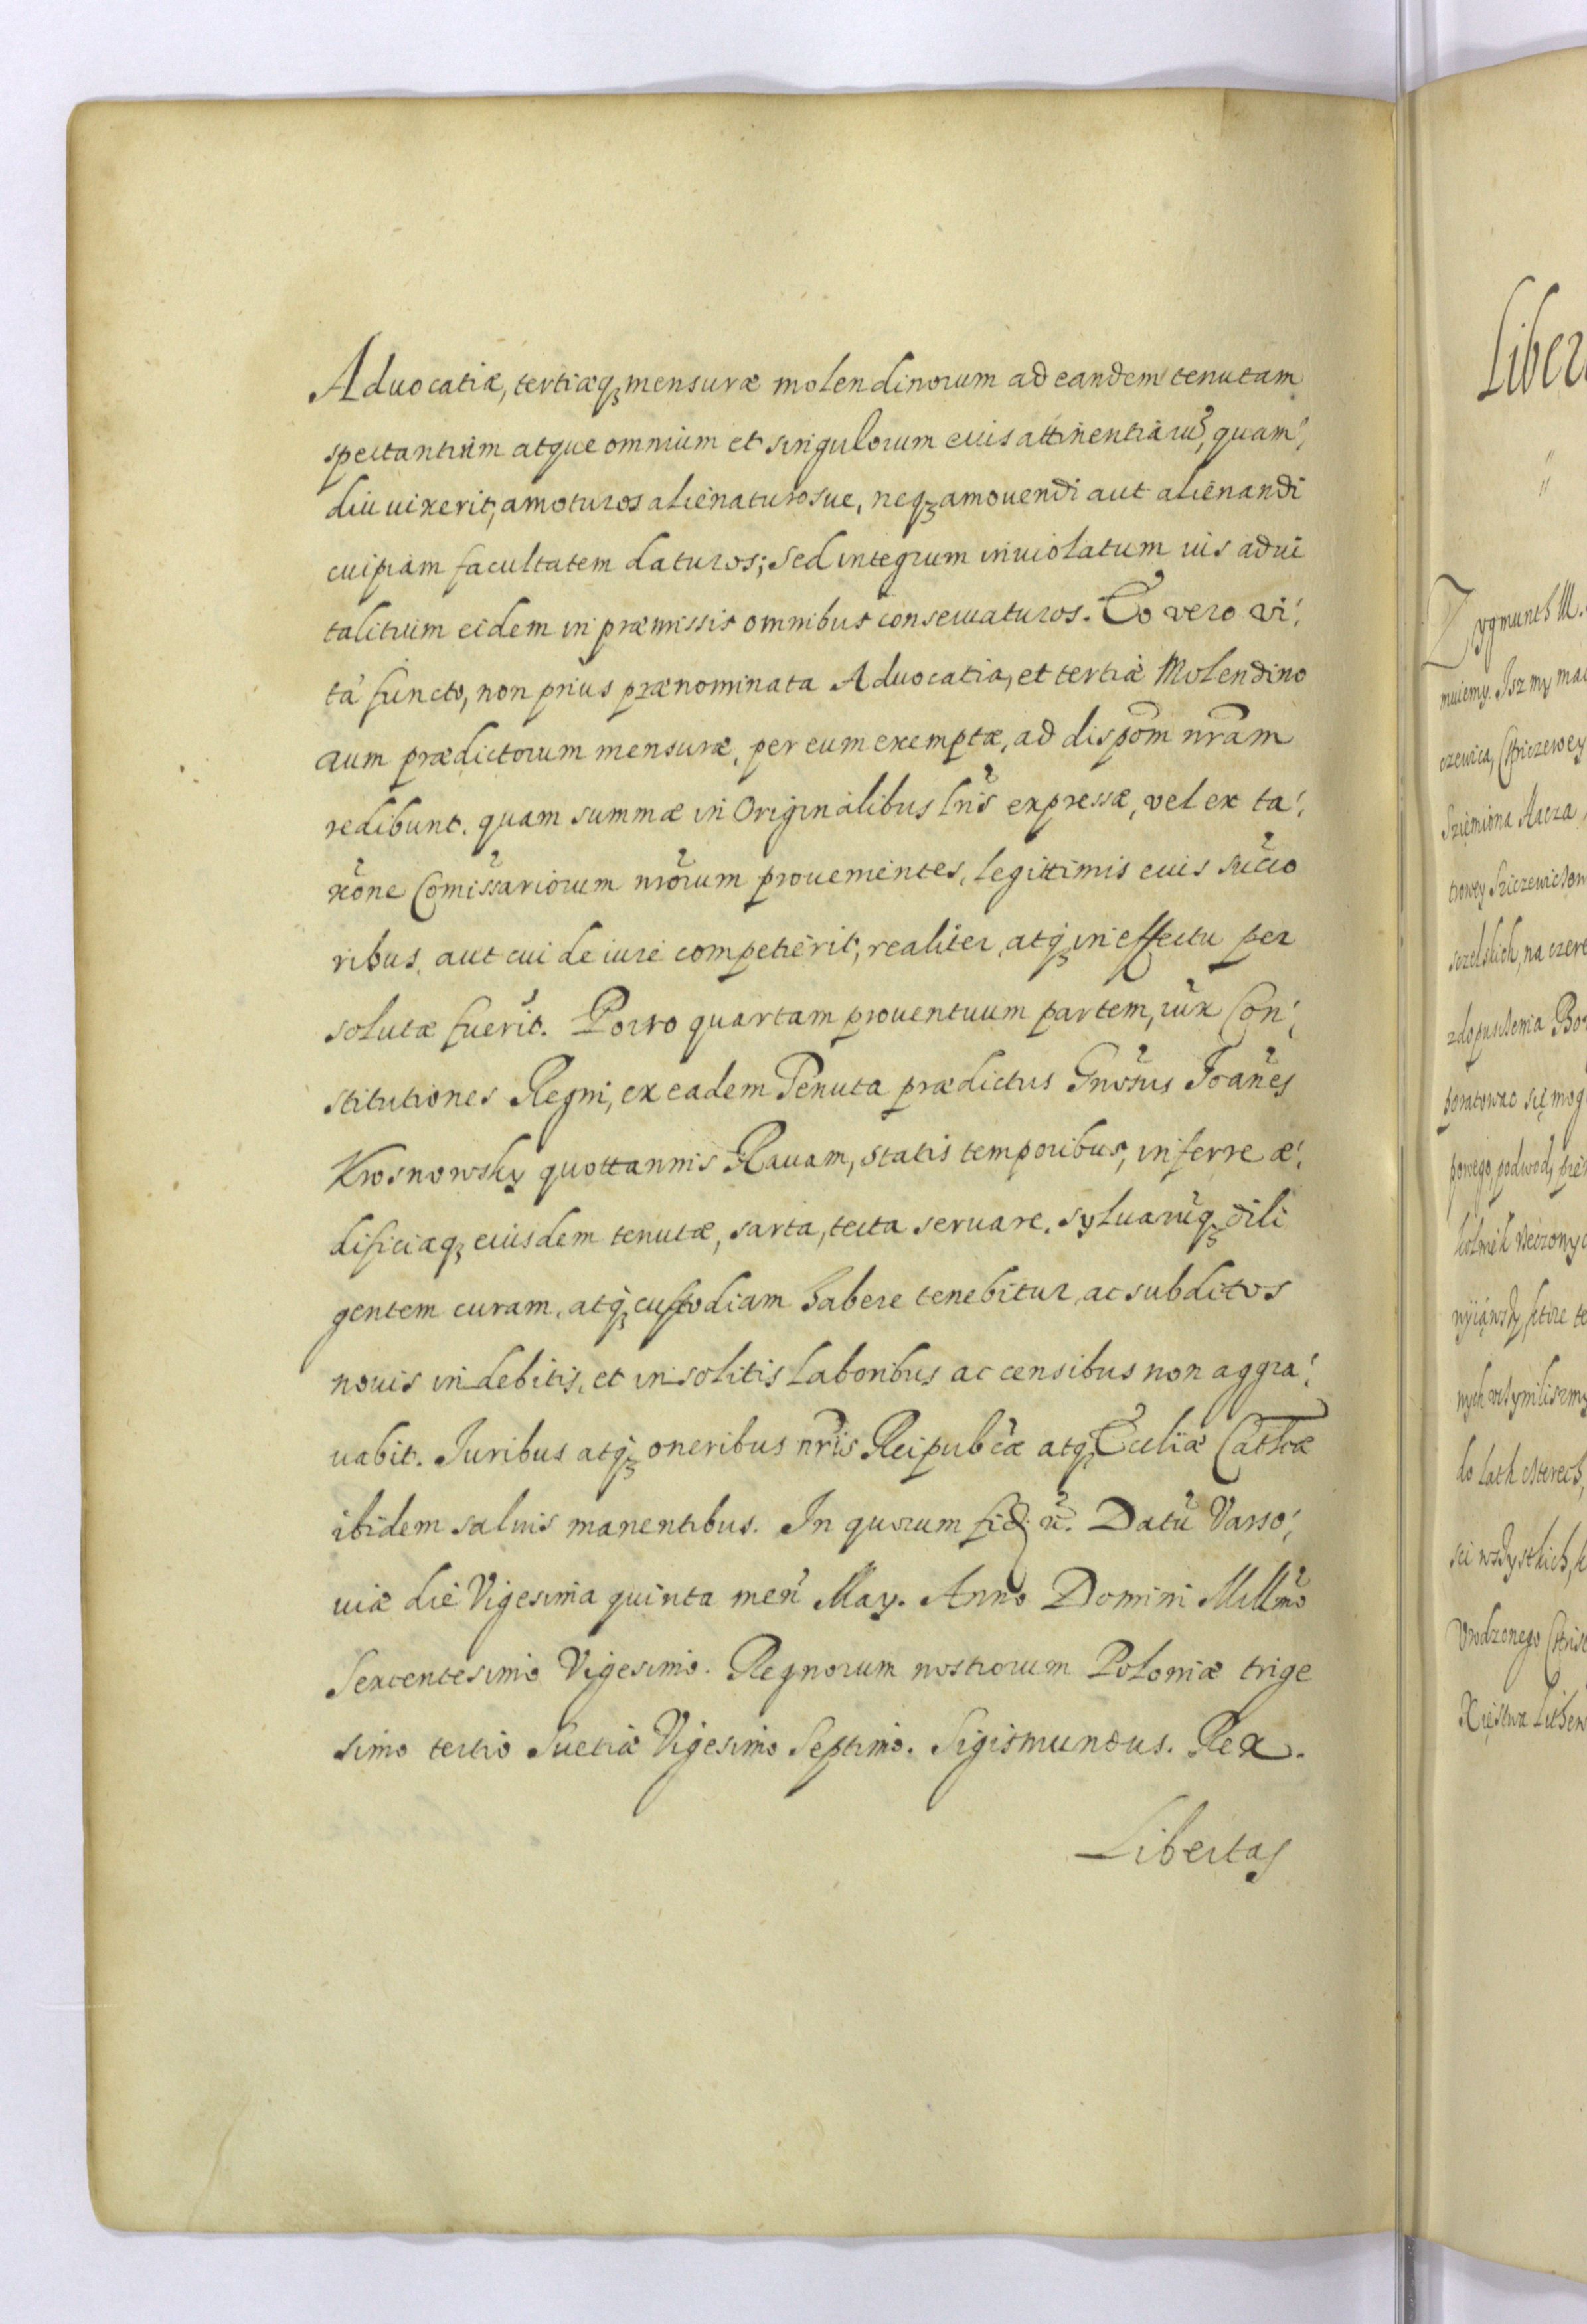 Aduocatiæ, tertiæq₃ mensuræ molendinorum ad eandem tenutam
spectantium atque omnium et singulorum euis attinentiarũ, quam,
diu uixerit, amoturos alienaturosue, neq₃ amouendi aut alienandi
cuipiam facultatem daturos; Sed integrum inuiolatum ius adui
talitium eidem in præmissis omnibus conseruaturos. Eo vero vi,
ta functo, non prius prænominata Aduocatia, et tertiæ Molendino
rum prædictorum mensuræ, per eum exemptæ, ad dispõm nrãm
redibunt. quam summæ in Originalibus Lrĩs expressæ, vel ex ta,
xõne Comissariorum nrõrum prouenientes, legittimis euis succo
ribus aut cui de iure competierit, realiter, atq₃ in effectu per
solutæ fuerit. Porro quartam prouentuum partem, iux̃ Con,
stitutiones Regni, ex eadem Tenuta prædictus Gnõsus Joañes
Krosnowsky quottannis Rauam, statis temporibus, inferre æ,
dificiaq₃ eiusdem tenutæ, sarta, tecta seruare, syluarũq₃ dili
gentem curam, atq₃ custodiam habere tenebitur, ac subditos
nouis indebitis, et insolitis laboribus ac censibus non aggra,
uabit. Juribus atq₃ oneribus nrĩs Reipubcæ atq₃ Eccliæ Cathcæ
ibidem saluis manentibus. In quorum fid: &c̃. Datũ Varso,
uiæ die Vigesima quinta meñ May. Anno Domini Millmõ
Sexcentesimo Vigesimo. Regnorum nostrorum Poloniæ trige
simo tertio Suetiæ Vigesimo Septimo. Sigismundus. Rex.
Libertas
Liber
Zygmunth III.
muiemy. Isz my
czewica,
Sziemiona
na
zdopuszczenia
poratowac się
powego, podwod,
które
nych
do lath czterech,
sci wszystkich,
Vrodzonego
Xięstwa